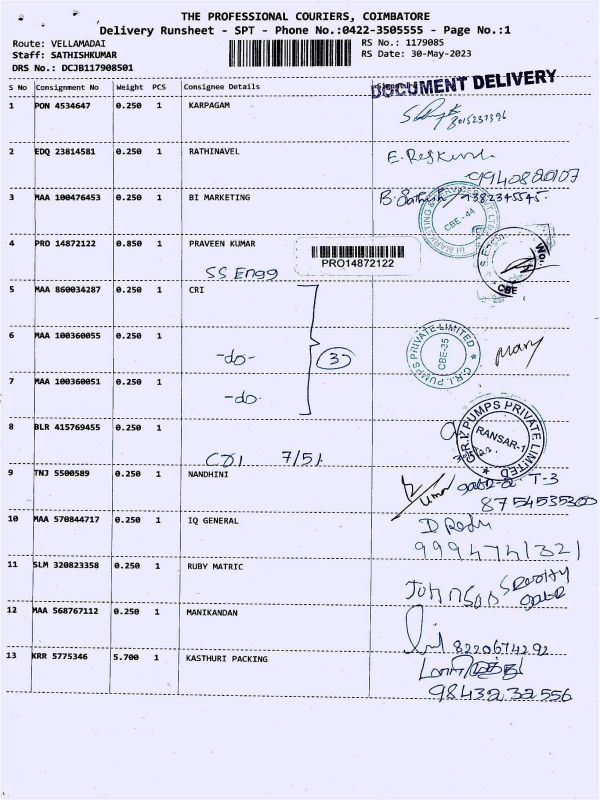 THE PROFESSIONAL COURIERS, COIMBATORE
Delivery Runsheet - SPT - Phone No.:0422-3505555 - Page No.:1
Route: VELLAMADAI RS No.: 1179085
Staff: SATHISHKUMAR RS Date: 30-May-2023
DRS No.: DCJB117908501
DOCUMENT DELIVERY
S No Consignment No Weight PCS Consignee Details
1 PON 4534647 0.250 1 KARPAGAM
8015237396
2 EDQ 23814581 0.250 1 RATHINAVEL
9940820107
3 MAA 100476453 0.250 1 BI MARKETING B. Sathish 9382345545
CBE-44
4 PRO 14872122 0.850 1 PRAVEEN KUMAR
PRO14872122
SS Engg
CBE
5 MAA 860034287 0.250 1 CRI
6 MAA 100360055 0.250 1
-do- 3
C.R.I. PUMPS PRIVATE LIMITED
CBE-35
Mary
7 MAA 100360051 0.250 1
-do-
8 BLR 415769455 0.250 1
C.R.I. PUMPS PRIVATE LIMITED
RANSAR-1
CRI 7/51
9 TNJ 5500589 0.250 1 NANDHINI
T-3
8754535300
10 MAA 570844717 0.250 1 IQ GENERAL
9994741321
11 SLM 320823358 0.250 1 RUBY MATRIC
Johnson
12 MAA 568767112 0.250 1 MANIKANDAN
8220674292
13 KRR 5775346 5.700 1 KASTHURI PACKING
9843232556